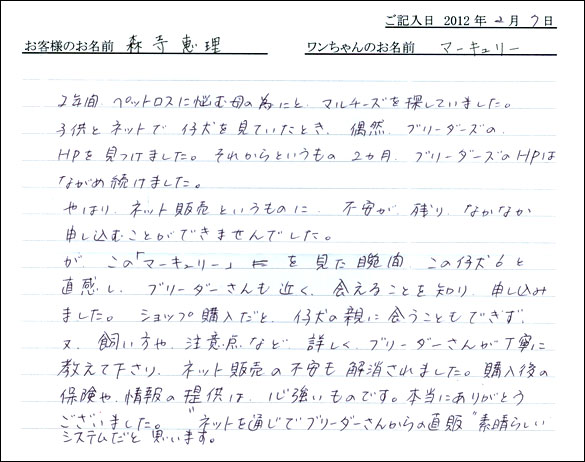 ご記入日 2012年 2月 7日
お客様のお名前 森寺恵理 ワンちゃんのお名前 マーキュリー
2年間、ペットロスに悩む母の為にと、マルチーズを探していました。
子供とネットで仔犬を見ていたとき、偶然、ブリーダーズの、
HPを見つけました。それからというもの2カ月、ブリーダーズのHPは
ながめ続けました。
やはり、ネット販売というものに、不安が、残り、なかなか
申し込むことができませんでした。
が、この「マーキュリー」を見た瞬間、この仔犬だと
直感し、ブリーダーさんも近く、会えることを知り、申し込み
ました。ショップ購入だと、仔犬の親に会うこともできず、
又、飼い方や、注意点など、詳しく、ブリーダーさんが丁寧に
教えて下さり、ネット販売の不安も解消されました。購入後の
保険や、情報の提供は、心強いものです。本当にありがとう
ございました。"ネットを通じてブリーダーさんからの直販"素晴らしい
システムだと思います。